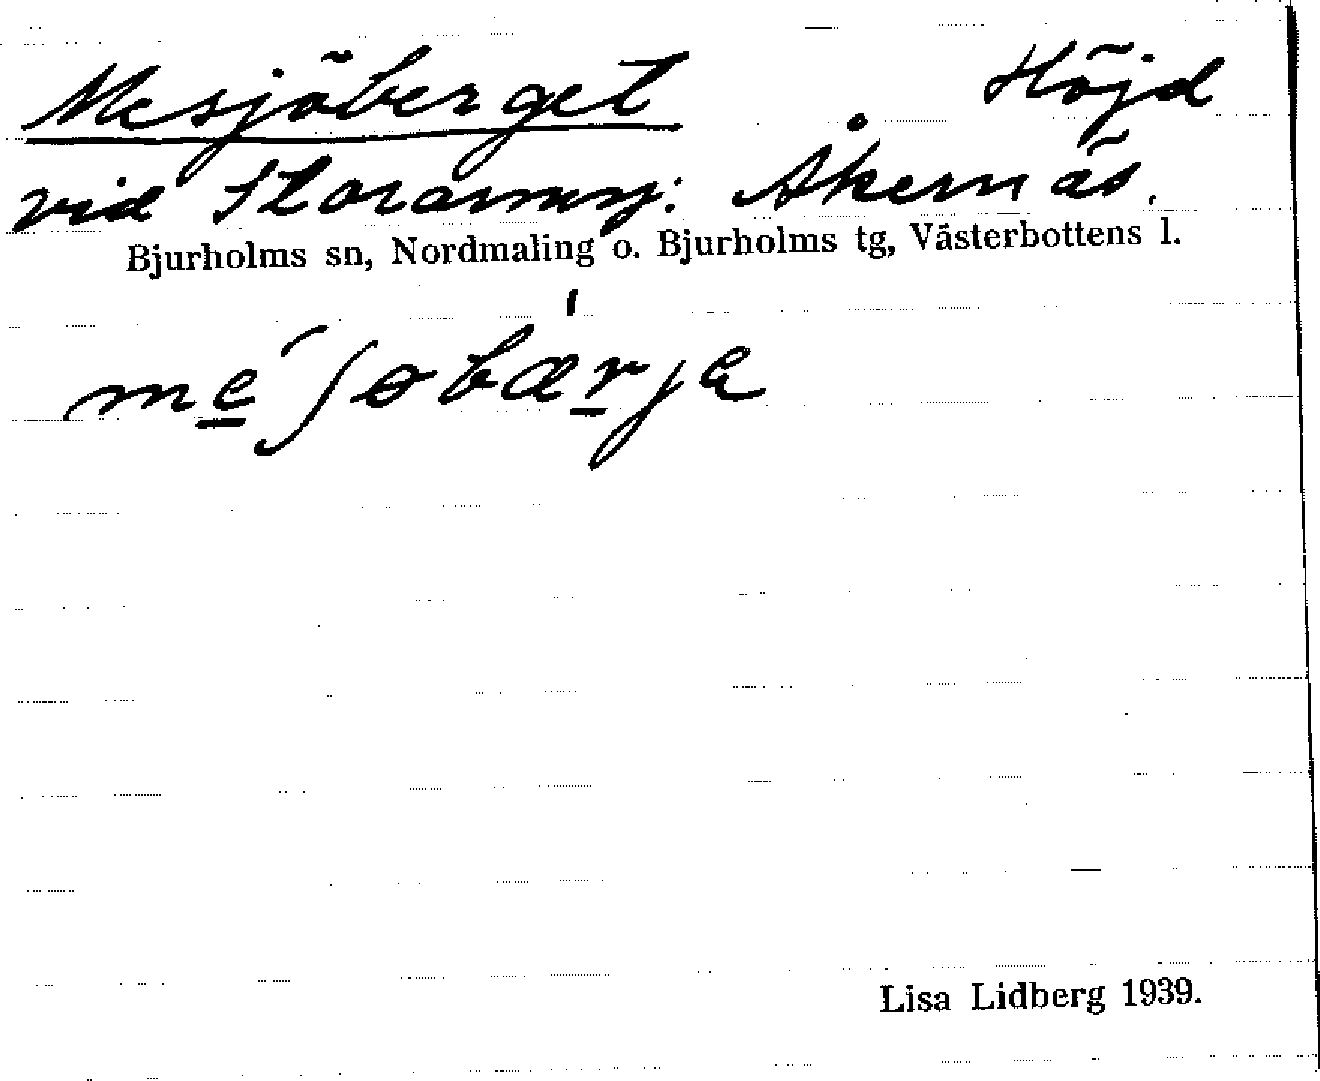 Mesjöberget Höjd
vid Storarmsj: Åkernäs.
Bjurholms sn, Nordmaling o. Bjurholms tg, Västerbottens l.
Lisa Lidberg 1939.